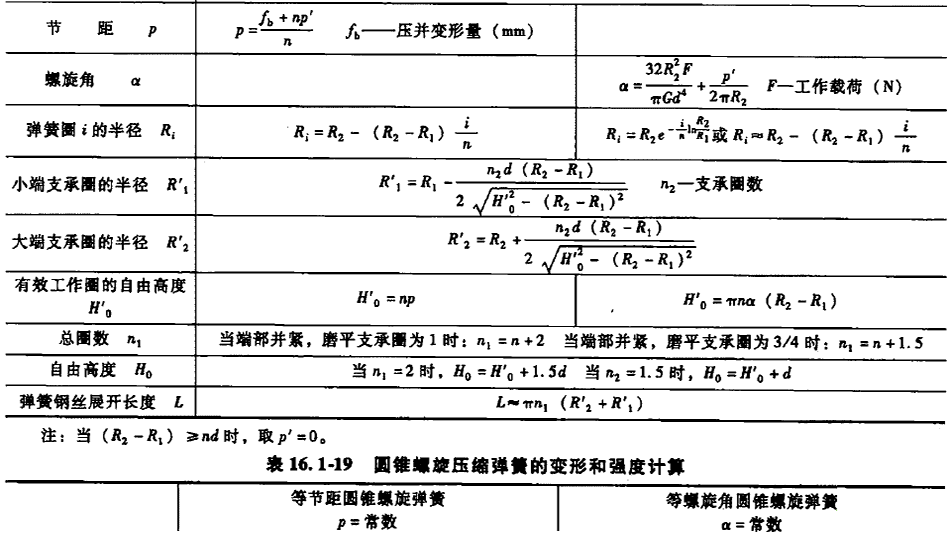 节 距 p p=\frac{f_b+np'}{n} f_b——压并变形量（mm）
螺旋角 α α=\frac{32R_2^2F}{πGd^4}+\frac{p'}{2πR_2} F—工作载荷（N）
弹簧圈 i 的半径 R_i R_i=R_2-（R_2-R_1）\frac{i}{n} R_i=R_2e^{-\frac{i}{n}\ln\frac{R_2}{R_1}}或 R_i≈R_2-（R_2-R_1）\frac{i}{n}
小端支承圈的半径 R'_1 R'_1=R_1-\frac{n_2d（R_2-R_1）}{2\sqrt{H'^2_0-（R_2-R_1）^2}} n_2—支承圈数
大端支承圈的半径 R'_2 R'_2=R_2+\frac{n_2d（R_2-R_1）}{2\sqrt{H'^2_0-（R_2-R_1）^2}}
有效工作圈的自由高度
H'_0 H'_0=np H'_0=πnα（R_2-R_1）
总圈数 n_1 当端部并紧，磨平支承圈为 1 时：n_1=n+2 当端部并紧，磨平支承圈为 3/4 时：n_1=n+1.5
自由高度 H_0 当 n_1=2 时，H_0=H'_0+1.5d 当 n_2=1.5 时，H_0=H'_0+d
弹簧钢丝展开长度 L L≈πn_1（R'_2+R'_1）
注：当（R_2-R_1）≥nd 时，取 p'=0。
表 16.1-19 圆锥螺旋压缩弹簧的变形和强度计算
等节距圆锥螺旋弹簧 等螺旋角圆锥螺旋弹簧
p=常数 α=常数